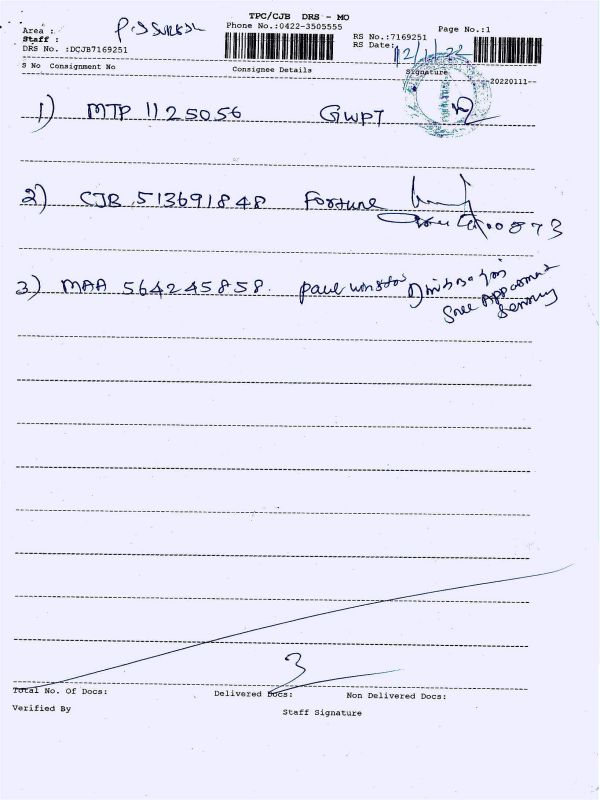 TPC/CJB DRS - MO
Area :
Phone No.:0422-3505555
Page No.:1
Staff :
RS No.:7169251
DRS No. :DCJB7169251
RS Date:
12/1/22
S No Consignment No Consignee Details Signature
20220111--
1) MTP 1125056 GWPT
2) CJB 513691848 Fortune
3) MAA 564245858. Paul
Sree
3
Total No. Of Docs: Delivered Docs: Non Delivered Docs:
Verified By
Staff Signature